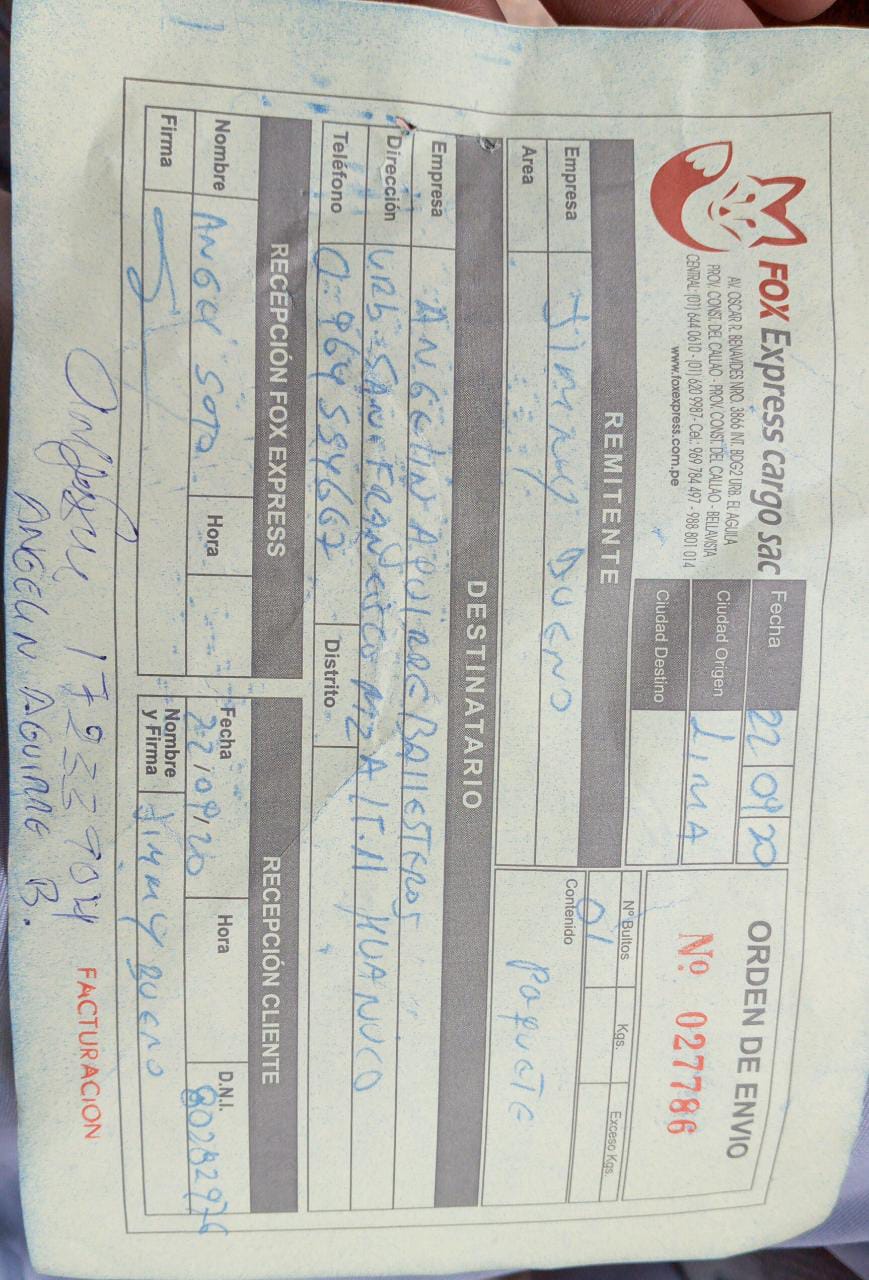 FOX Express cargo sac
AV. OSCAR R. BENAVIDES NRO. 3866 INT. BDG2 URB. EL AGUILA
PROV. CONST. DEL CALLAO - PROV. CONST. DEL CALLAO - BELLAVISTA
CENTRAL: (01) 644 0610 - (01) 620 9987 - Cel.: 969 784 497 - 988 801 014
www.foxexpress.com.pe
Fecha 22 09 20
Ciudad Origen LIMA
Ciudad Destino
ORDEN DE ENVIO
Nº 027786
REMITENTE
Empresa JIMMY BUENO
Area
Nº Bultos Kgs. Exceso Kgs.
01
Contenido
PAQUETE
DESTINATARIO
Empresa ANGELIN AQUIRRE BALLESTEROS
Dirección URB. SAN FRANCISCO MZ A LT. 11 HUANUCO
Teléfono 964554667 Distrito
RECEPCIÓN FOX EXPRESS
Nombre ANGEL SOTO Hora
Firma
RECEPCIÓN CLIENTE
Fecha 22/09/20 Hora D.N.I. 80282976
Nombre y Firma JIMMY BUENO
ANGELIN AGUIRRE B.
FACTURACION